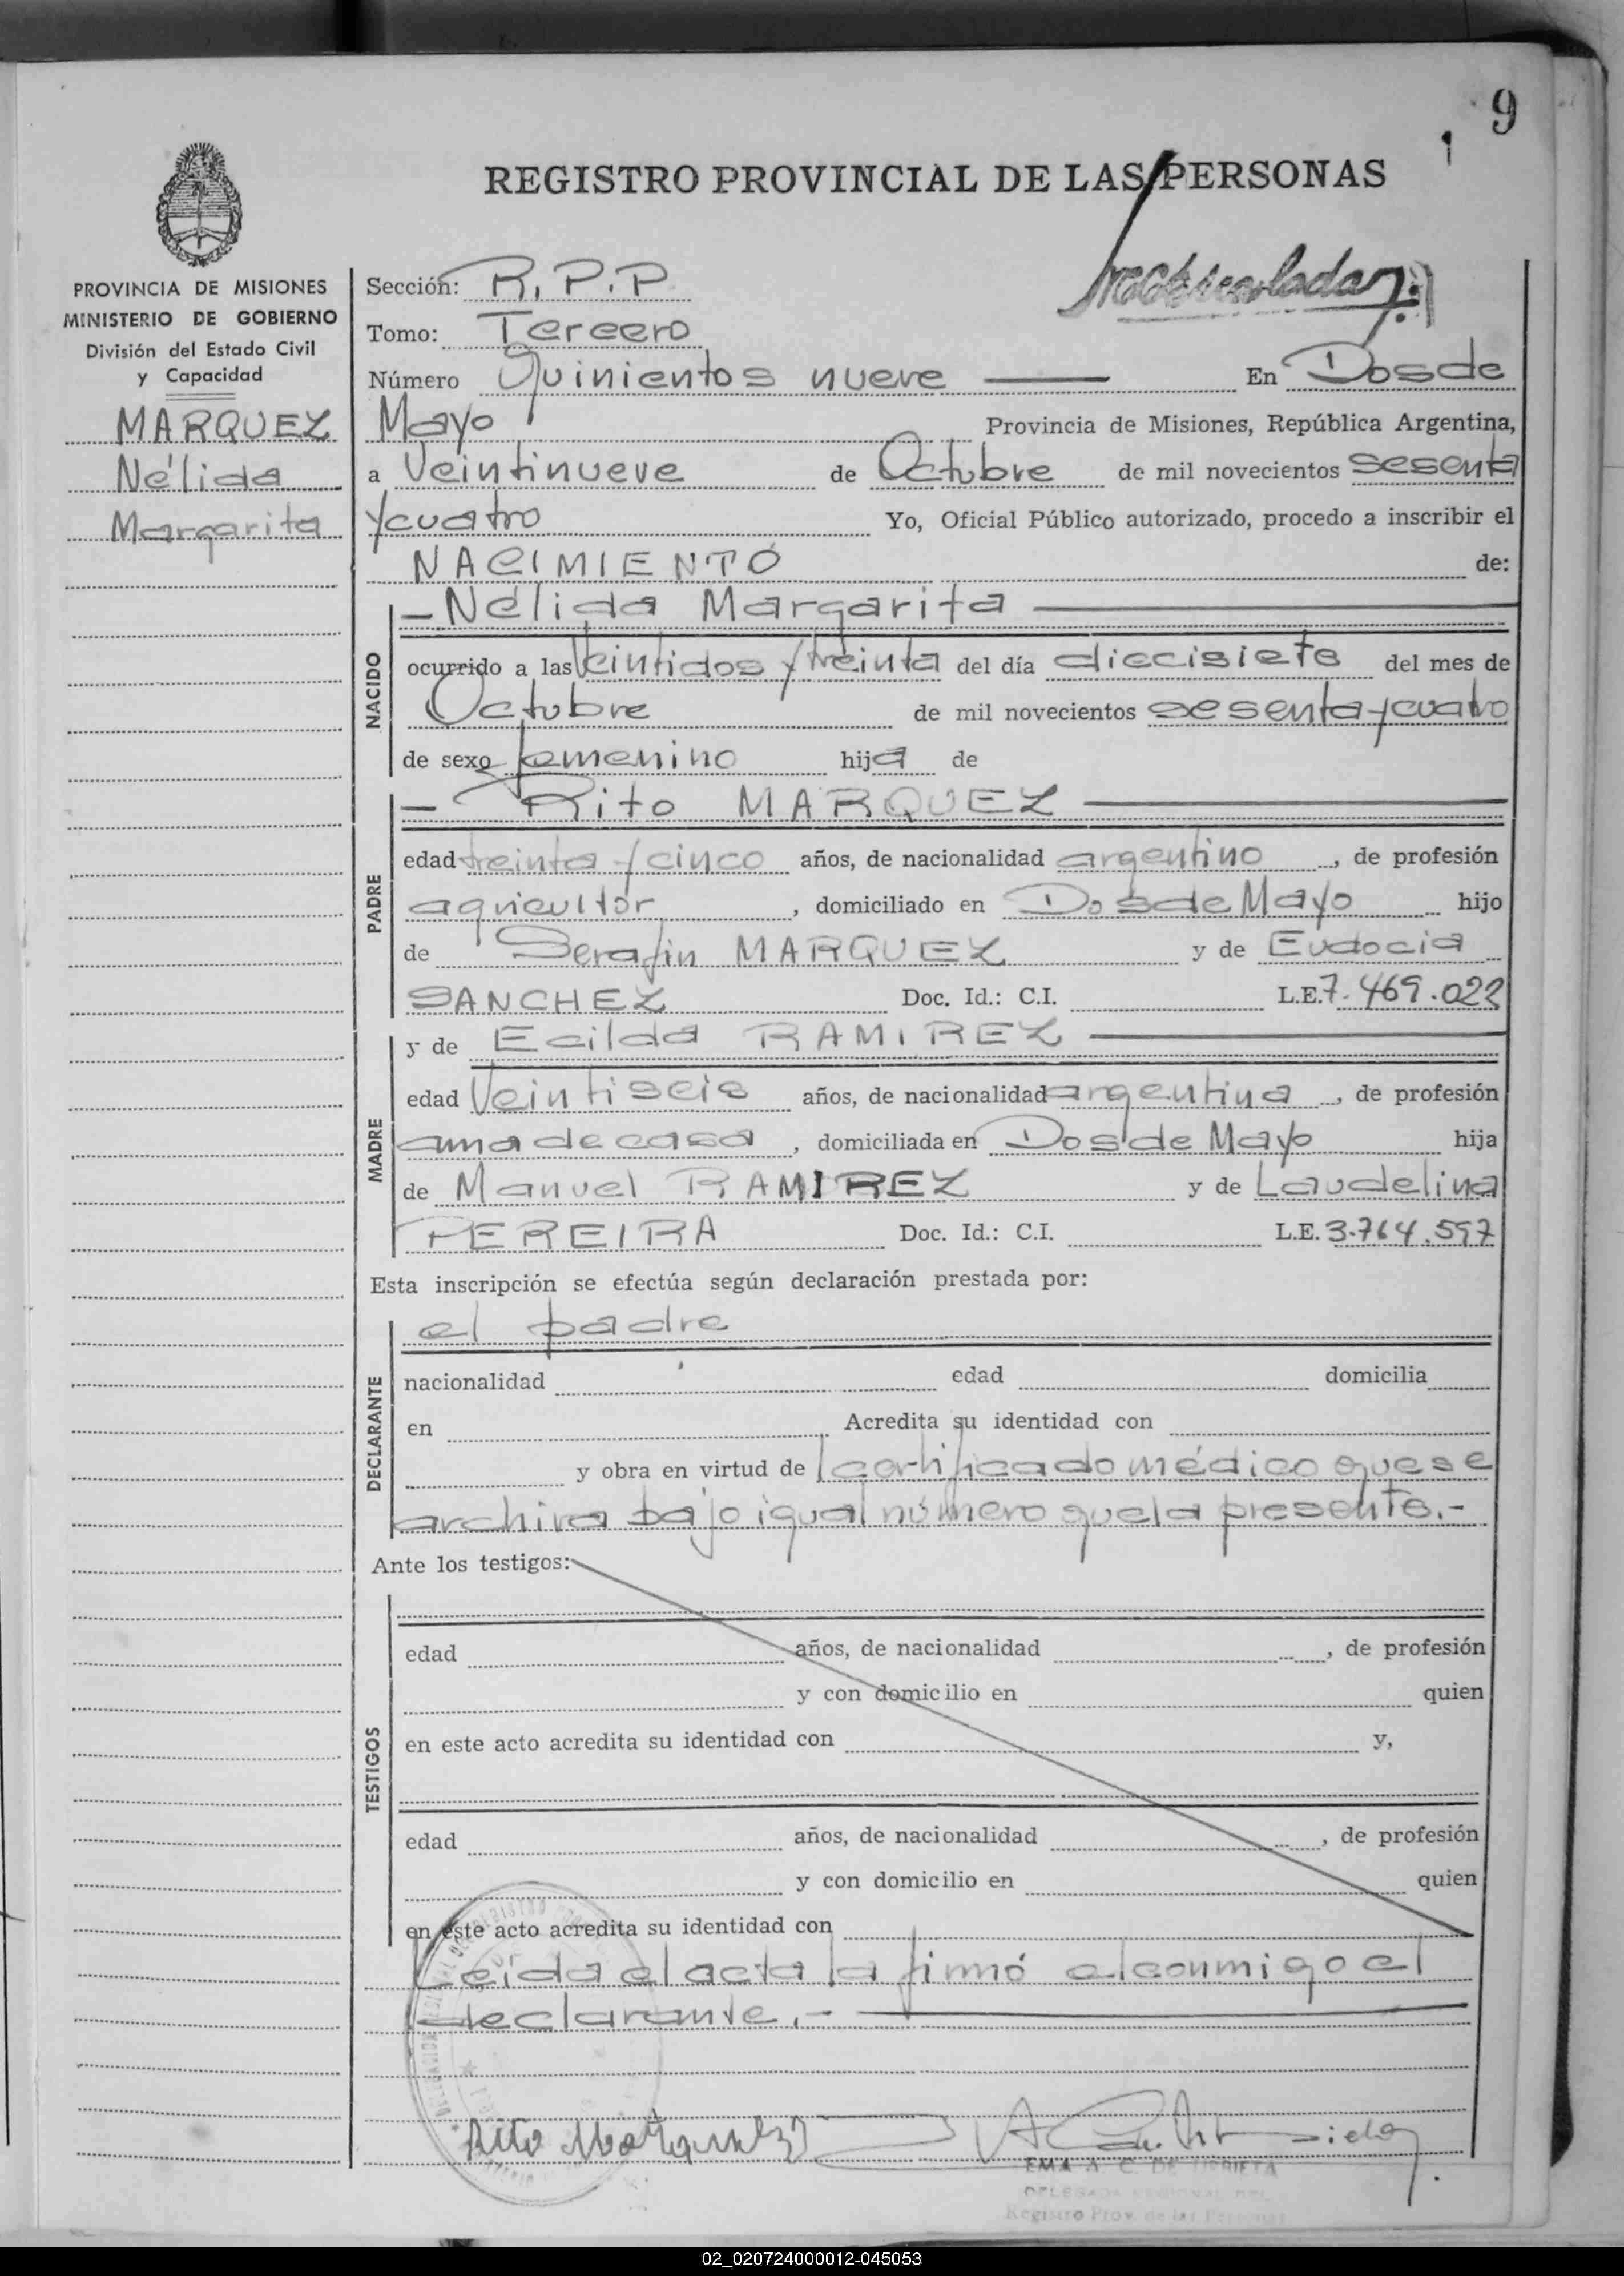 9
REGISTRO PROVINCIAL DE LAS PERSONAS
PROVINCIA DE MISIONES
MINISTERIO DE GOBIERNO
División del Estado Civil
y Capacidad
MARQUEZ
Nélida
Margarita
Sección: R.P.P.
Tomo: Tercero
Número Quinientos nueve En Dos de
Mayo Provincia de Misiones, República Argentina,
a Veintinueve de Octubre de mil novecientos sesenta
y cuatro Yo, Oficial Público autorizado, procedo a inscribir el
NACIMIENTO de:
NACIDO
- Nélida Margarita
ocurrido a las Veintidos y treinta del día diecisiete del mes de
Octubre de mil novecientos sesenta y cuatro
de sexo femenino hija de
PADRE
- Rito MARQUEZ
edad treinta y cinco años, de nacionalidad argentino, de profesión
agricultor, domiciliado en Dos de Mayo hijo
de Serafin MARQUEZ y de Eudocia
SANCHEZ Doc. Id.: C.I. L.E. 7.469.023
MADRE
y de Ecilda RAMIREZ
edad Veintiseis años, de nacionalidad argentina, de profesión
ama de casa, domiciliada en Dos de Mayo hija
de Manuel RAMIREZ y de Laudelina
PEREIRA Doc. Id.: C.I. L.E. 3.764.597
Esta inscripción se efectúa según declaración prestada por:
DECLARANTE
el padre
nacionalidad edad domicilia
en Acredita su identidad con
y obra en virtud de certificado médico que se
archiva bajo igual número que la presente.-
Ante los testigos:
TESTIGOS
edad años, de nacionalidad , de profesión
y con domicilio en quien
en este acto acredita su identidad con y,
edad años, de nacionalidad , de profesión
y con domicilio en quien
en este acto acredita su identidad con
Leída el acta la firmó conmigo el
declarante.-
Rito Marquez
EMA A. C. DE URRIETA
DELEGADA REGIONAL DEL
Registro Prov. de las Personas
02_020724000012-045053